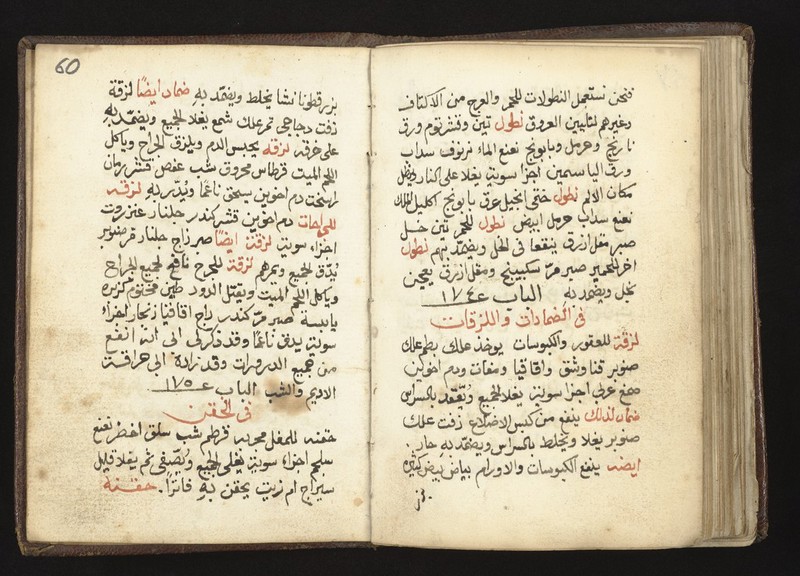 فنحن نستعمل النطولات للحمر والعرج من الاكتاف
وغيرهم لتليين العروق نطول تين وقشر توم ورق
نارنج وحرمل وبابونج نعنع الماء سداب
ورق الياسمين اجزا سويه يغلا على النار وينطل
مكان الالم نطول بابونج اكليل الملك
نعنع سداب حرمل ابيض نطول للحمر تين خل
صبر مقل ازرق ينقعا في الخل ويضمد بهم نطول
اخر للحمير صبر مر سكبينج ومقل ازرق يعجن
بخل ويضمد به الباب ع ١٧٤
في الضمادات واللزقات
لزقة للعقور والكبوسات يوخذ علك بطم علك
صنوبر قنا وشق واقاقيا ومغات ودم اخوين
صمغ عربي اجزا سويه يغلا الجميع ويعقد بالسراس
ضماد لذلك ينفع من كبس الاضلاع زفت علك
صنوبر يغلا ويخلط بالسراس ويضمد به حار.
ايضه ينفع الكبوسات والاورام بياض بيض كثيره
بزر
60
بزرقطونا نشا يخلط ويضمد به ضماد ايضا لزقة
زفت دجاجي علك شمع يغلا الجميع ويضمد به
على خرقه لزقه يحبس الدم ويلزق الجراح وياكل
اللحم الميت قرطاس محروق شب عفص قشر رمان
دم اخوين يسحق ناعما ويذر به لزقه
للجراحات دم اخوين قشر كندر جلنار عنزروت
اجزاء سويه لزقه ايضا صبر زاج جلنار صنوبر
يدق الجميع ويمرهم لزقة للجرح نافع لجميع الجراح
وياكل اللحم الميت ويقتل الدود طين مختوم كزبره
يابسة صبر مر كندر زاج اقاقيا زنجار اجزاء
سويه يدق ناعما وقد ذكر لي الى انه انفع
من جميع الدرورات وقد زادة الى حراقة
الاديم والشب الباب ع ١٧٥
في الحقن
حقنه للمغل قرطم شب سلق اخضر نعنع
اجزاء سويه يغلى الجميع ويصفى ثم يغلا قليل
سيراج ام زيت يحقن به فاترا. حقنة